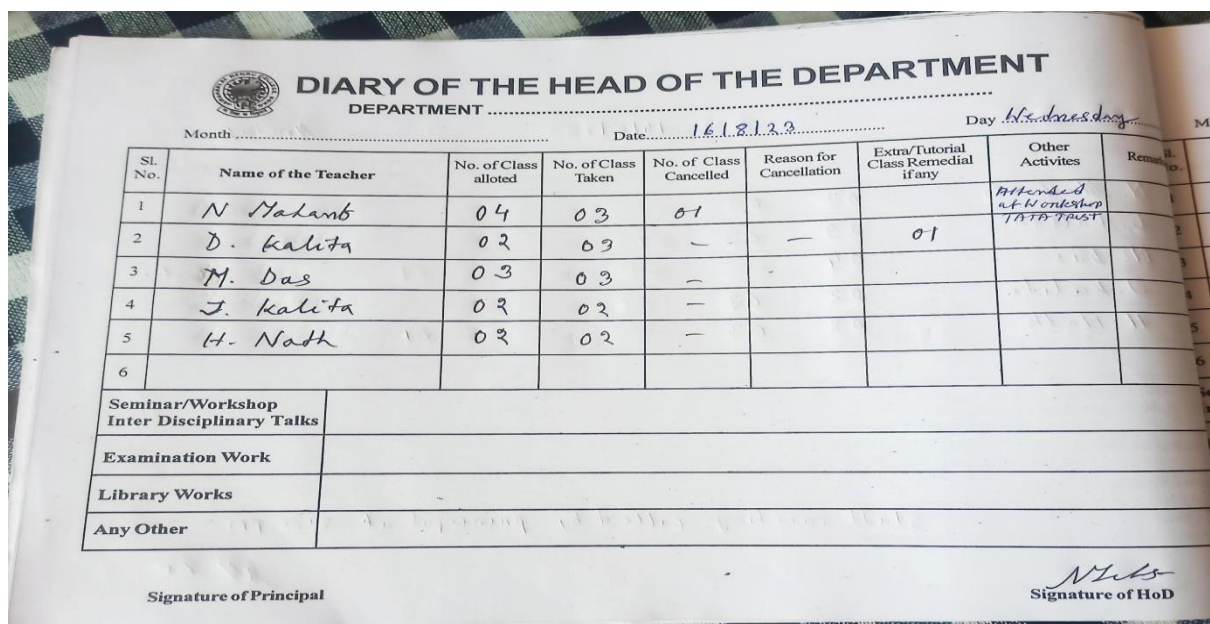 DIARY OF THE HEAD OF THE DEPARTMENT
DEPARTMENT
Month Date 16/8/23 Day Wednesday
Sl. No. Name of the Teacher No. of Class alloted No. of Class Taken No. of Class Cancelled Reason for Cancellation Extra/Tutorial Class Remedial if any Other Activites
1 N 04 03 01 Attended at Workshop TATA TRUST
2 D. Kalita 02 03 — — 01
3 M. Das 03 03 —
4 J. Kalita 02 02 —
5 H. Nath 02 02 —
6
Seminar/Workshop
Inter Disciplinary Talks
Examination Work
Library Works
Any Other
Signature of Principal Signature of HoD